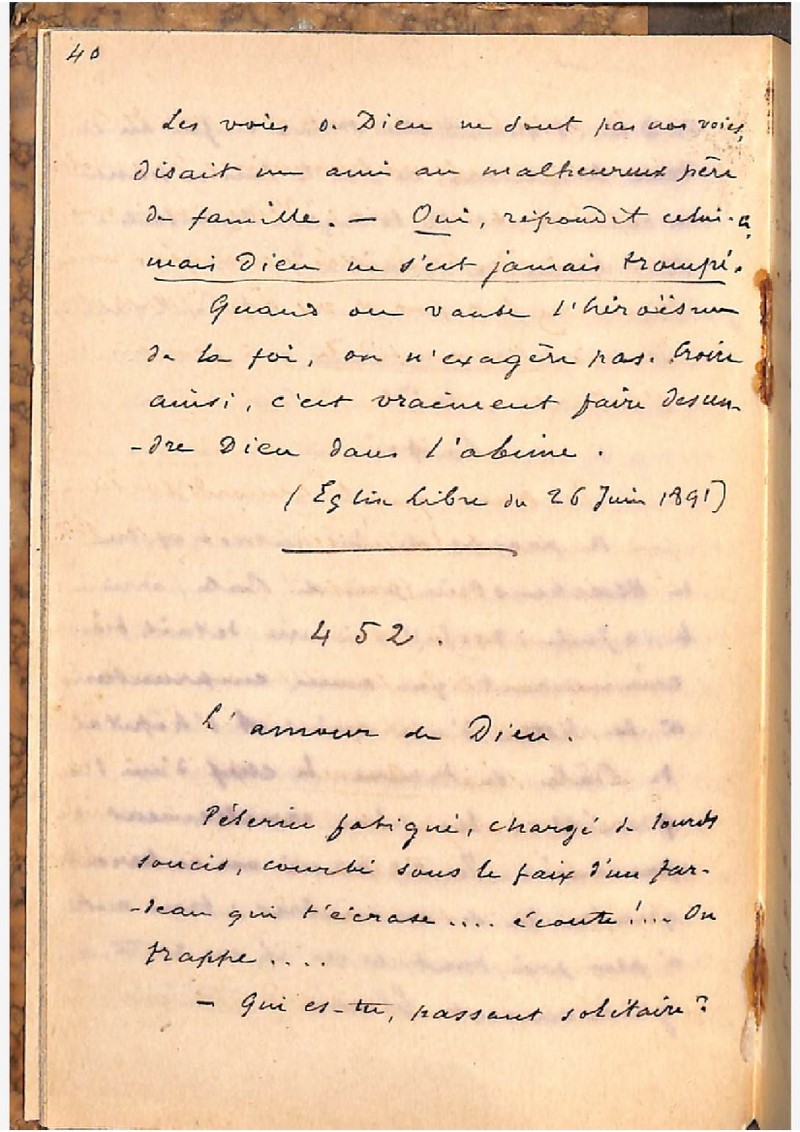 40
Les voies de Dieu ne sont pas nos voies,
disait un ami au malheureux père
de famille. — Oui, répondit celui-ci,
mais Dieu ne s'est jamais trompé.
Quand on vante l'héroïsme
de la foi, on n'exagère pas. Croire
ainsi, c'est vraiment faire descen-
-dre Dieu dans l'abime.
(Eglise Libre du 26 Juin 1891)
452.
L'amour de Dieu.
Pélerin fatigué, chargé de lourds
soucis, courbé sous le faix d'un far-
-deau qui t'écrase.... écoute!... On
frappe....
— Qui es-tu, passant solitaire?